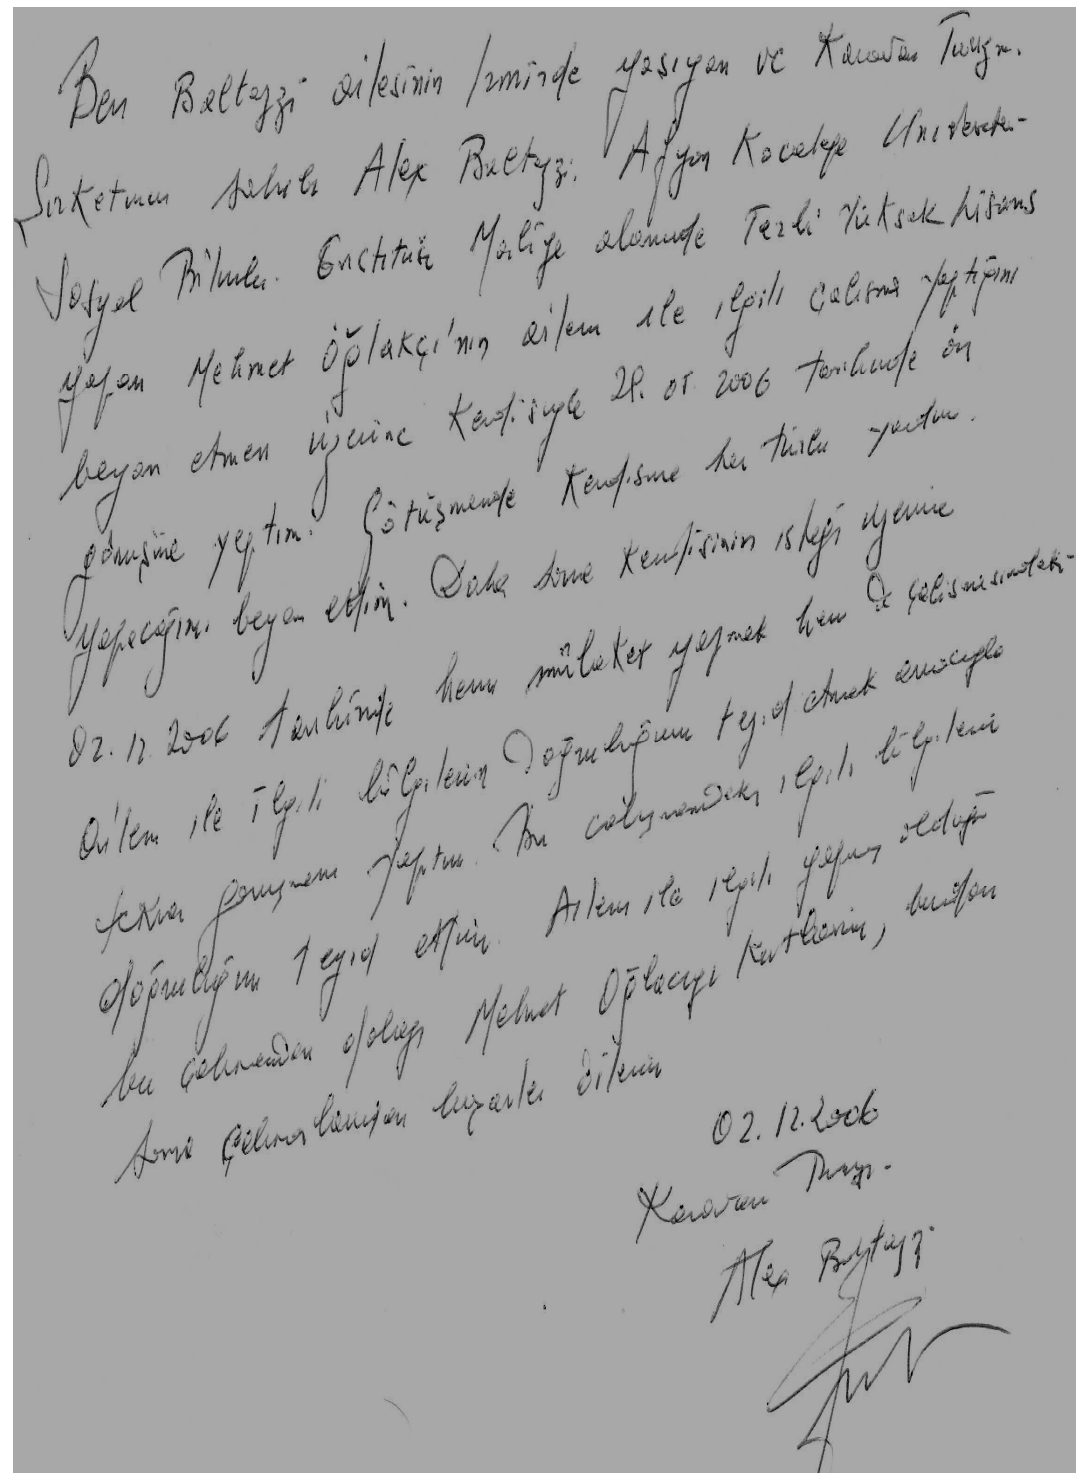 Ben Baltazzi ailesinin İzmirde yaşıyan ve Karavan Turizm.
Şirketinin sahibi Alex Baltazzi. Afyon Kocatepe Üniversitesi
Sosyal Bilimler Enstitüsü Maliye alanında Tezli Yüksek lisans
yapan Mehmet Oğlakçı'nın ailem ile ilgili çalışma yaptığını
beyan etmesi üzerine Kendisiyle 2006 tarihinde ön
görüşme yaptım. Görüşmende Kendisine her türlü yardım.
yapacağımı beyan ettim. Daha sonra Kendisinin isteği üzerine
02.12.2006 tarihinde hem mülakat yapmak hem de çalışmasındaki
Ailem ile ilgili bilgilerin Doğruluğunu teyid etmek amacıyla
tekrar yaptım. Bu ilgili bilgilerin
doğruluğunu teyid ettim. Ailem ile ilgili yapmış olduğu
bu çalışmadan dolayı Mehmet Oğlakçıyı Kutlarım, bundan
sonra çalışmalarından başarılar dilerim
02.12.2006
Karavan Turz.
Alex Baltazzi